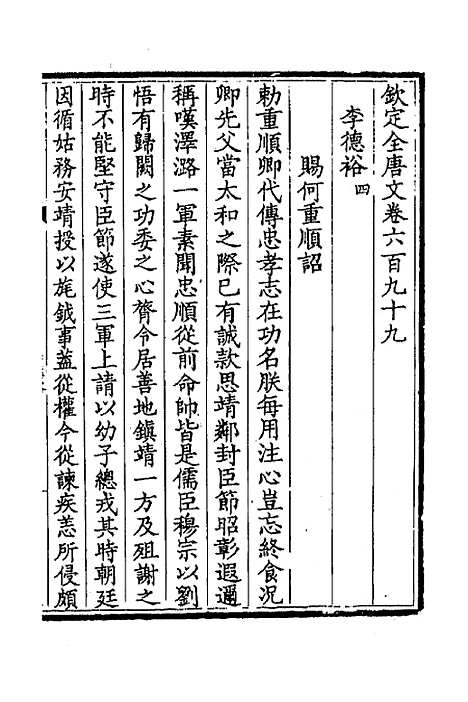 欽定全唐文卷六百九十九
李德裕四
賜何重順詔
勅重順卿代傳忠孝志在功名朕每用注心豈忘終食況
卿先父當太和之際已有誠款思靖鄰封臣節昭彰遐邇
稱嘆澤潞一軍素聞忠順從前命帥皆是儒臣穆宗以劉
悟有歸闕之功委之心膂令居善地鎮靖一方及殂謝之
時不能堅守臣節遂使三軍上請以幼子總戎其時朝廷
因循姑務安靖授以旄鉞事蓋從權今從諫疾恙所侵頗